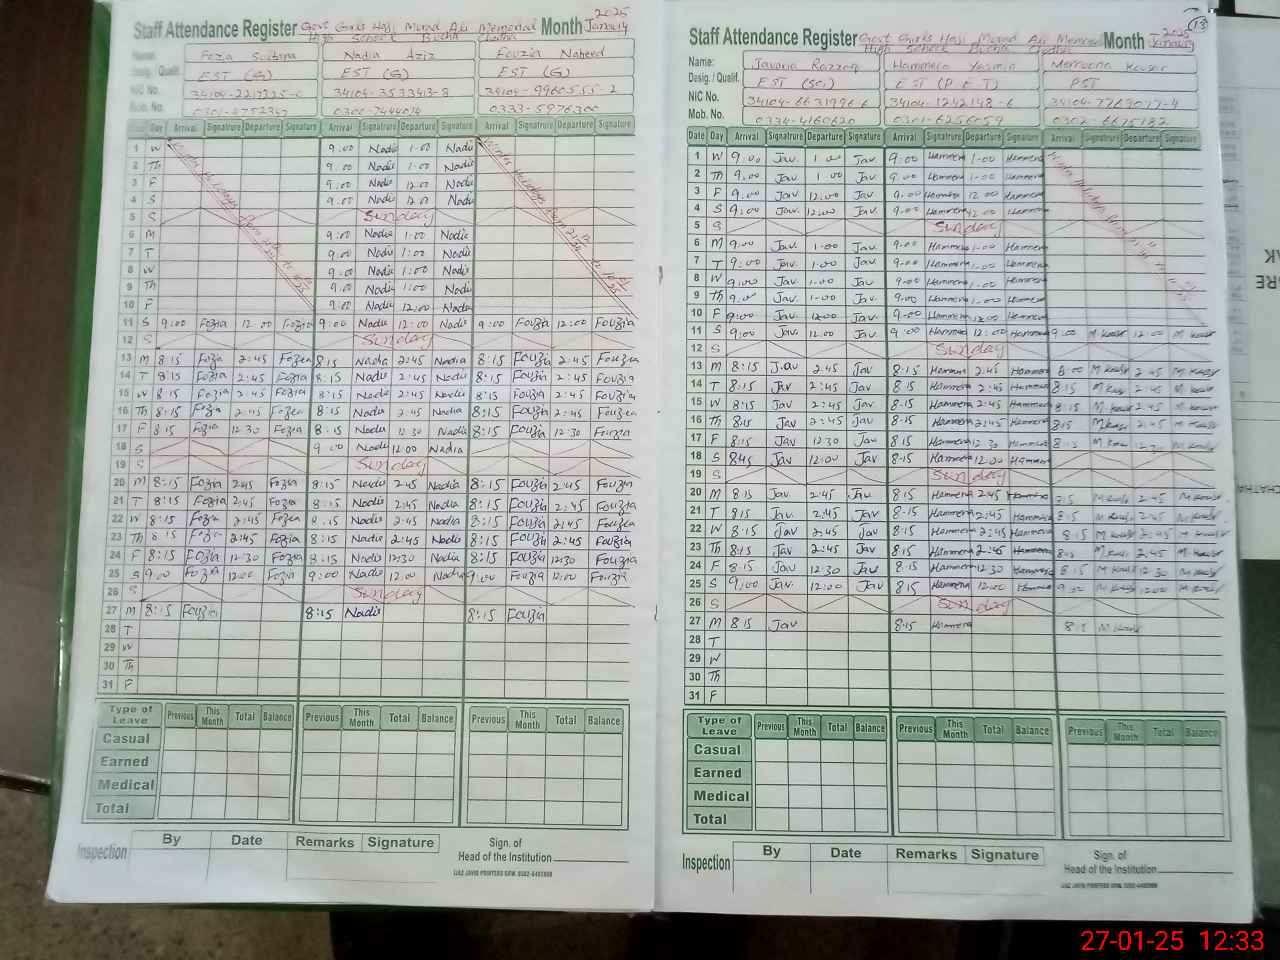 Staff Attendance Register Govt Girls Haji Murad Ali Memorial Month January 2025
High School Bucha Chattha
Name: Fozia Sultana Nadia Aziz Fouzia Naheed
Desig. / Qualif. EST (G) EST (G) EST (G)
NIC No. 34104-3533413-8 34104-9960555-2
Mob. No. 0300-7444014 0333-5976300
Date Day Arrival Signatrure Departure Signatrure Arrival Signatrure Departure Signatrure Arrival Signatrure Departure Signatrure
1 W 9:00 Nadia 1-00 Nadia
2 Th 9:00 Nadia 1-00 Nadia
3 F 9:00 Nadia 12:00 Nadia
4 S 9:00 Nadia 12:00 Nadia
5 S Sunday
6 M 9:00 Nadia 1-00 Nadia
7 T 9:00 Nadia 1:00 Nadia
8 W 9:00 Nadia 1:00 Nadia
9 Th 9:00 Nadia 1:00 Nadia
10 F 9:00 Nadia 12:00 Nadia
11 S 9:00 Fozia 12:00 Fozia 9:00 Nadia 12:00 Nadia 9:00 Fouzia 12:00 Fouzia
12 S Sunday
13 M 8:15 Fozia 2:45 Fozia 8:15 Nadia 2:45 Nadia 8:15 Fouzia 2:45 Fouzia
14 T 8:15 Fozia 2:45 Fozia 8:15 Nadia 2:45 Nadia 8:15 Fouzia 2:45 Fouzia
15 W 8:15 Fozia 2:45 Fozia 8:15 Nadia 2:45 Nadia 8:15 Fouzia 2:45 Fouzia
16 Th 8:15 Fozia 2:45 Fozia 8:15 Nadia 2:45 Nadia 8:15 Fouzia 2:45 Fouzia
17 F 8:15 Fozia 12:30 Fozia 8:15 Nadia 12:30 Nadia 8:15 Fouzia 12:30 Fouzia
18 S 9:00 Nadia 12:00 Nadia
19 S Sunday
20 M 8:15 Fozia 2:45 Fozia 8:15 Nadia 2:45 Nadia 8:15 Fouzia 2:45 Fouzia
21 T 8:15 Fozia 2:45 Fozia 8:15 Nadia 2:45 Nadia 8:15 Fouzia 2:45 Fouzia
22 W 8:15 Fozia 2:45 Fozia 8:15 Nadia 2:45 Nadia 8:15 Fouzia 2:45 Fouzia
23 Th 8:15 Fozia 2:45 Fozia 8:15 Nadia 2:45 Nadia 8:15 Fouzia 2:45 Fouzia
24 F 8:15 Fozia 12:30 Fozia 8:15 Nadia 12:30 Nadia 8:15 Fouzia 12:30 Fouzia
25 S 9:00 Fozia 12:00 Fozia 9:00 Nadia 12:00 Nadia 9:00 Fouzia 12:00 Fouzia
26 S Sunday
27 M 8:15 Fouzia 8:15 Nadia 8:15 Fouzia
28 T
29 W
30 Th
31 F
Type of Leave Previous This Month Total Balance Previous This Month Total Balance Previous This Month Total Balance
Casual
Earned
Medical
Total
Inspection By Date Remarks Signature Sign. of Head of the Institution
Staff Attendance Register Govt Girls Haji Murad Ali Memorial Month January 2025 13
High School Bucha Chattha
Name: Javaria Razzaq Hammera Yasmin Memoona Kousar
Desig. / Qualif. EST (Sci) EST (P.E.T) PST
NIC No. 34104-6631996-6 34104-1242148-6 34104-7763077-4
Mob. No. 0334-4160620 0301-6256059 0302-6675182
Date Day Arrival Signatrure Departure Signatrure Arrival Signatrure Departure Signatrure Arrival Signatrure Departure Signatrure
1 W 9:00 Jav 1:00 Jav 9:00 Hammera 1-00 Hammera
2 Th 9:00 Jav 1:00 Jav 9:00 Hammera 1-00 Hammera
3 F 9:00 Jav 12:00 Jav 9:00 Hammera 12:00 Hammera
4 S 9:00 Jav 12:00 Jav 9:00 Hammera 12:00 Hammera
5 S Sunday
6 M 9:00 Jav 1-00 Jav 9:00 Hammera 1-00 Hammera
7 T 9:00 Jav 1-00 Jav 9:00 Hammera 1-00 Hammera
8 W 9:00 Jav 1-00 Jav 9:00 Hammera 1-00 Hammera
9 Th 9:00 Jav 1-00 Jav 9:00 Hammera 1-00 Hammera
10 F 9:00 Jav 12:00 Jav 9:00 Hammera 12:00 Hammera
11 S 9:00 Jav 12:00 Jav 9:00 Hammera 12:00 Hammera 9:00 M Kousr 12:00 M Kousr
12 S Sunday
13 M 8:15 Jav 2:45 Jav 8:15 Hammera 2:45 Hammera 8:00 M Kousr 2:45 M Kousr
14 T 8:15 Jav 2:45 Jav 8:15 Hammera 2:45 Hammera 8:15 M Kousr 2:45 M Kousr
15 W 8:15 Jav 2:45 Jav 8:15 Hammera 2:45 Hammera 8:15 M Kousr 2:45 M Kousr
16 Th 8:15 Jav 2:45 Jav 8:15 Hammera 2:45 Hammera 8:15 M Kousr 2:45 M Kousr
17 F 8:15 Jav 12:30 Jav 8:15 Hammera 12:30 Hammera 8:15 M Kousr 12:30 M Kousr
18 S 8:45 Jav 12:00 Jav 8:15 Hammera 12:00 Hammera
19 S Sunday
20 M 8:15 Jav 2:45 Jav 8:15 Hammera 2:45 Hammera 8:15 M Kousr 2:45 M Kousr
21 T 8:15 Jav 2:45 Jav 8:15 Hammera 2:45 Hammera 8:15 M Kousr 2:45 M Kousr
22 W 8:15 Jav 2:45 Jav 8:15 Hammera 2:45 Hammera 8:15 M Kousr 2:45 M Kousr
23 Th 8:15 Jav 2:45 Jav 8:15 Hammera 2:45 Hammera 8:15 M Kousr 2:45 M Kousr
24 F 8:15 Jav 12:30 Jav 8:15 Hammera 12:30 Hammera 8:15 M Kousr 12:30 M Kousr
25 S 9:00 Jav 12:00 Jav 8:15 Hammera 12:00 Hammera 9:00 M Kousr 12:00 M Kousr
26 S Sunday
27 M 8:15 Jav 8:15 Hammera M Kousr
28 T
29 W
30 Th
31 F
Type of Leave Previous This Month Total Balance Previous This Month Total Balance Previous This Month Total Balance
Casual
Earned
Medical
Total
Inspection By Date Remarks Signature Sign. of Head of the Institution
27-01-25 12:33